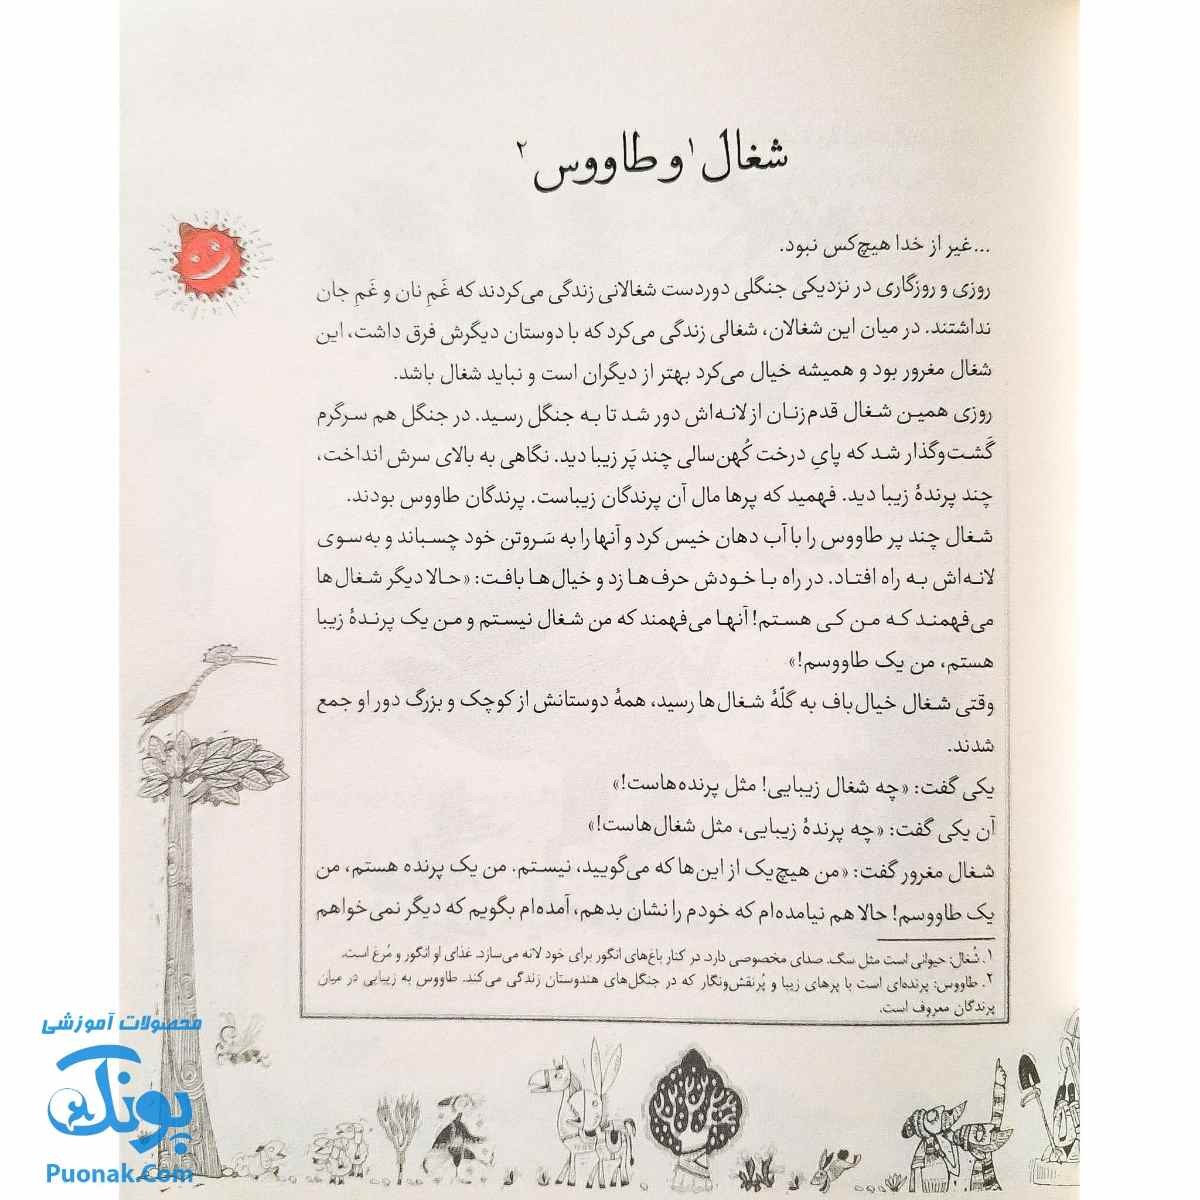 شغال۱ و طاووس۲
...غیر از خدا هیچ‌کس نبود.
روزی و روزگاری در نزدیکی جنگلی دوردست شغالانی زندگی می‌کردند که غَمِ نان و غَمِ جان
نداشتند. در میان این شغالان، شغالی زندگی می‌کرد که با دوستان دیگرش فرق داشت، این
شغال مغرور بود و همیشه خیال می‌کرد بهتر از دیگران است و نباید شغال باشد.
روزی همین شغال قدم‌زنان از لانه‌اش دور شد تا به جنگل رسید. در جنگل هم سرگرم
گَشت‌وگذار شد که پایِ درخت کُهن‌سالی چند پَر زیبا دید. نگاهی به بالای سرش انداخت،
چند پرندهٔ زیبا دید. فهمید که پرها مال آن پرندگان زیباست. پرندگان طاووس بودند.
شغال چند پر طاووس را با آب دهان خیس کرد و آنها را به سَروتن خود چسباند و به‌سوی
لانه‌اش به راه افتاد. در راه با خودش حرف‌ها زد و خیال‌ها بافت: «حالا دیگر شغال‌ها
می‌فهمند که من کی هستم! آنها می‌فهمند که من شغال نیستم و من یک پرندهٔ زیبا
هستم، من یک طاووسم!»
وقتی شغال خیال‌باف به گلّهٔ شغال‌ها رسید، همهٔ دوستانش از کوچک و بزرگ دور او جمع
شدند.
یکی گفت: «چه شغال زیبایی! مثل پرنده‌هاست!»
آن یکی گفت: «چه پرندهٔ زیبایی، مثل شغال‌هاست!»
شغال مغرور گفت: «من هیچ‌یک از این‌ها که می‌گویید، نیستم. من یک پرنده هستم، من
یک طاووسم! حالا هم نیامده‌ام که خودم را نشان بدهم، آمده‌ام بگویم که دیگر نمی‌خواهم
۱. شُغال: حیوانی است مثل سگ. صدای مخصوصی دارد. در کنار باغ‌های انگور برای خود لانه می‌سازد. غذای او انگور و مُرغ است.
۲. طاووس: پرنده‌ای است با پرهای زیبا و پُرنقش‌ونگار که در جنگل‌های هندوستان زندگی می‌کند. طاووس به زیبایی در میان
پرندگان معروف است.
محصولات آموزشی
پونک
Puonak.Com